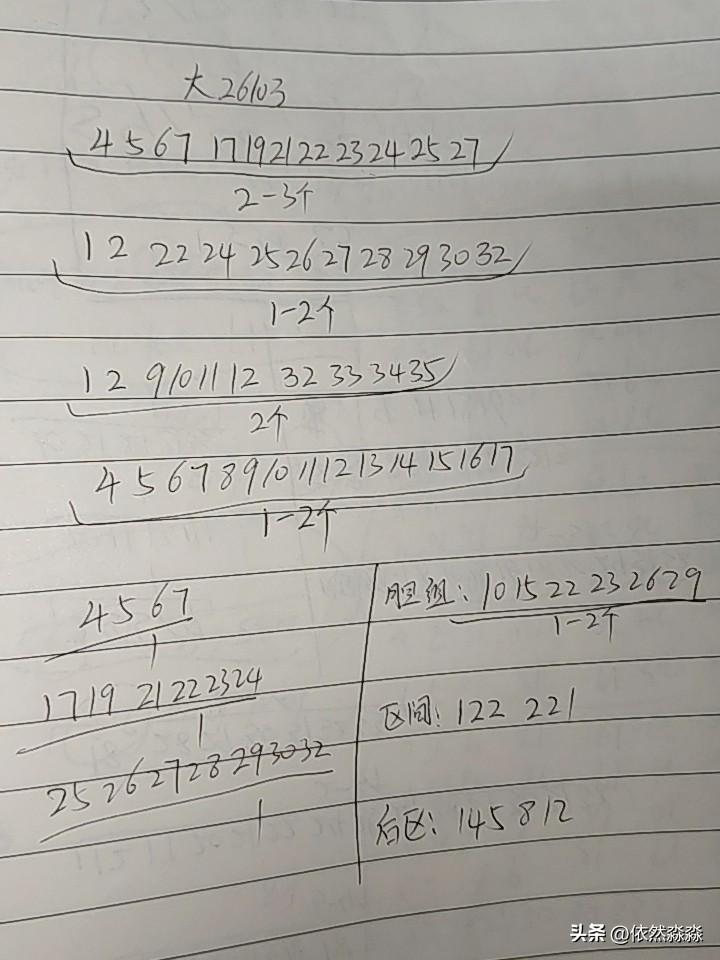 大26103
4 5 6 7 17 19 21 22 23 24 25 27
2-3个
1 2 22 24 25 26 27 28 29 30 32
1-2个
1 2 9 10 11 12 32 33 34 35
2个
4 5 6 7 8 9 10 11 12 13 14 15 16 17
1-2个
4 5 6 7
1
17 19 21 22 23 24
1
25 26 27 28 29 30 32
1
胆组: 10 15 22 23 26 29
1-2个
区间: 122 221
后区: 1 4 5 8 12
头条 @依然淼淼